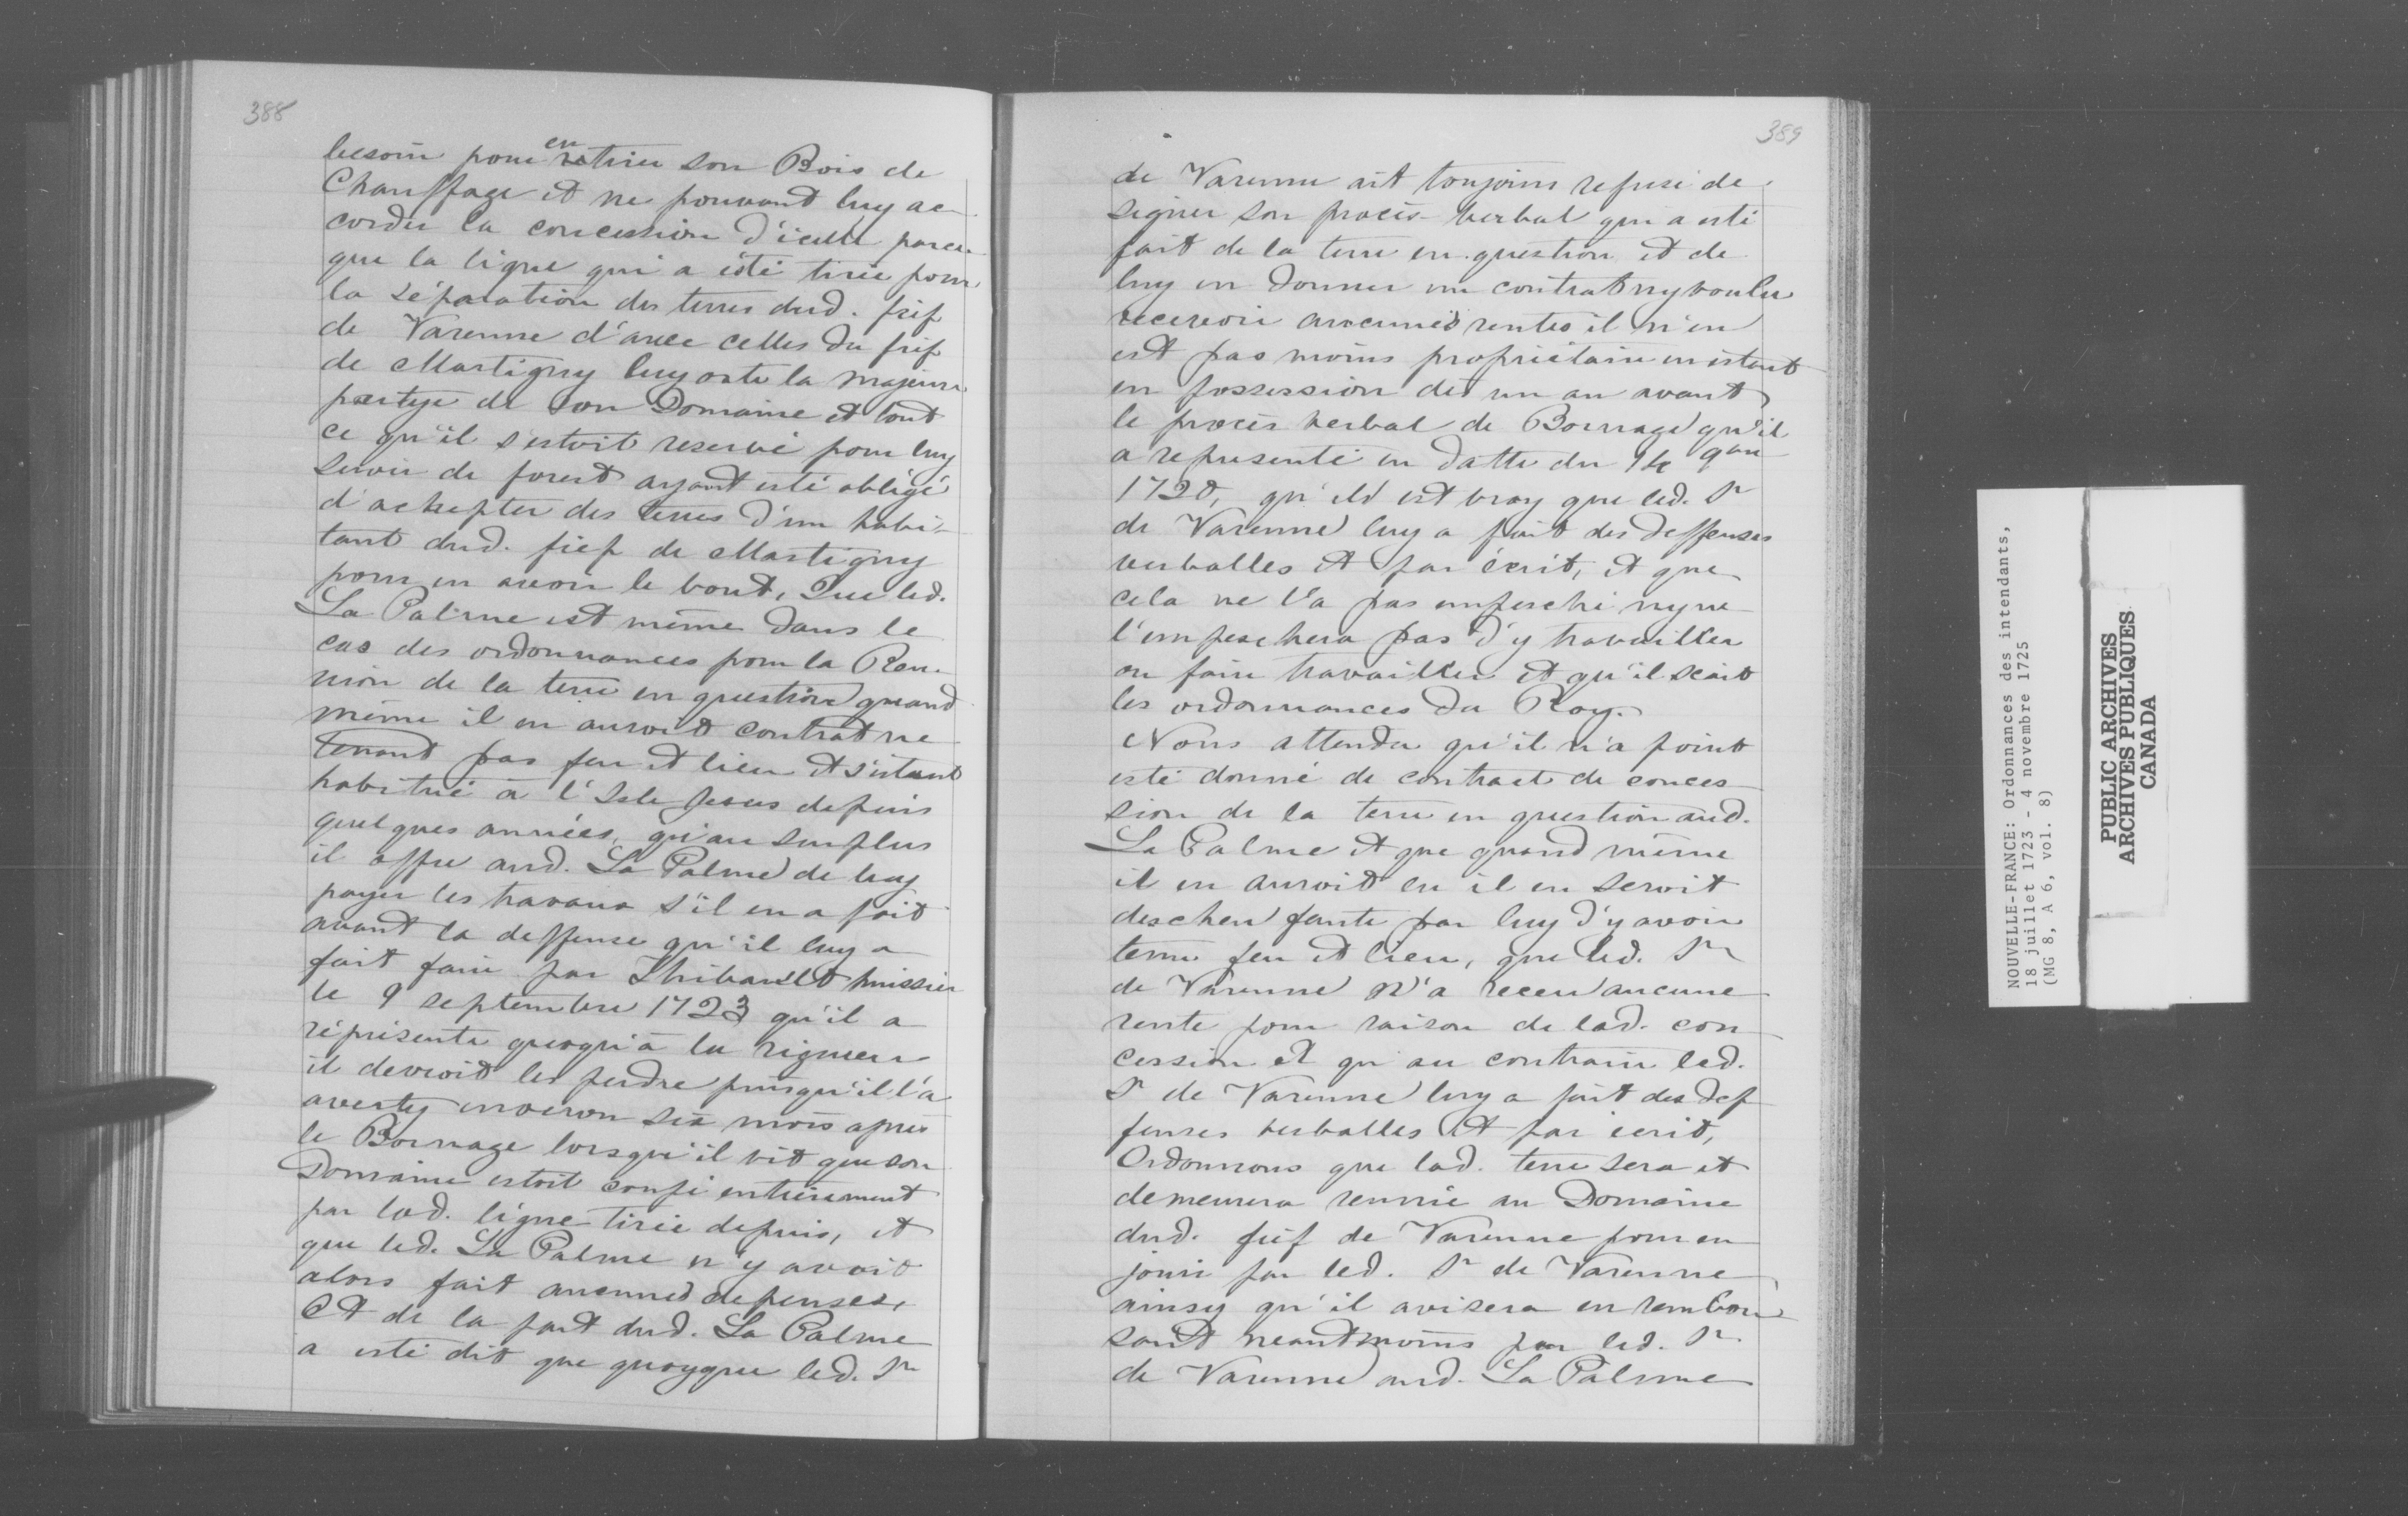 388
besoin pour en retirer son Bois de
Chauffage et ne pouvant luy ac-
corder la concession d'icelle parce
que la ligne qui a esté tirée pour
la séparation des terres dud. fief
de Varenne d'avec celles du fief
de Martigny luy oste la majeure
partye de son Domaine et tout
ce qu'il s'estoit reservé pour luy
servir de forest ayant esté obligé
d'achepter des terres d'un habi-
tant dud. fief de Martigny
pour en avoir le bout, Que led.
La Palme est même dans le
cas des ordonnances pour la Reu-
nion de la terre en question quand
même il en auroit contrat ne
tenant pas feu et lieu et s'estant
habitué à l'Isle Jesus depuis
quelques années, qu'au surplus
il offre aud. La Palme de luy
payer les travaux s'il en a fait
avant la deffense qu'il luy a
fait faire par Thibault huissier
le 9 septembre 1723 qu'il a
réprésenté quoqu'à la rigueur
il devroit les perdre puisqu'il l'a
averty environ six mois après
le Bornage lorsqu'il vit que son
Domaine estoit coupé entièrement
par lad. ligne tirée depuis, et
que led. La Palme n'y avoit
alors fait aucunes depenses,
Et de la part dud. La Palme
a esté dit que quoyque led. Sr
389
de Varenne ait toujours refusé de
signer son procès-verbal qui a esté
fait de la terre en question et de
luy en donner un contrat ny voulu
recevoir aucunes rentes il n'en
est pas moins propriétaire en estant
en possession dès un an avant
le procès verbal de Bornage qu'il
a representé en datte du 14
1720, qu'il est vray que led. Sr
de Varenne luy a fait des deffenses
verballes et par écrit, et que
cela ne l'a pas empesché ny ne
l'empeschera pas d'y travailler
ou faire travailler et qu'il scait
les ordonnances du Roy.
Nous attendu qu'il n'a point
esté donné de contract de conces
sion de la terre en question aud.
La Palme et que quand même
il en auroit eu il en seroit
descheu faute par luy d'y avoir
tenu feu et lieu, que led. Sr
de Varenne n'a receu aucune
rente pour raison de lad. con
cession et qu'au contraire led.
Sr de Varenne luy a fait des def
fenses verballes et par ecrit,
Ordonnons que lad. terre sera et
demeurera reunie au Domaine
dud. fief de Varenne pour en
jouir par led. Sr de Varenne
ainsy qu'il avisera en rembour
sant neantmoins par led. Sr
de Varenne aud. La Palme
NOUVELLE-FRANCE: Ordonnances des intendants,
18 juillet 1723 - 4 novembre 1725
(MG 8, A 6, vol. 8)
PUBLIC ARCHIVES
ARCHIVES PUBLIQUES
CANADA